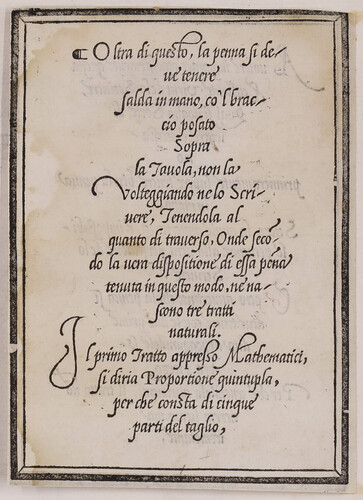 Oltra di questo, la penna si de-
ve tenere
salda in mano, co'l brac-
cio posato
Sopra
la Tavola, non la
Volteggiando ne lo Scri-
vere, Tenendola al
quanto di traverso, Onde secō-
do la vera dispositione di essa pēna
tenuta in questo modo, ne na-
scono tre tratti
naturali.
Il primo Tratto appresso Mathematici,
si diria Proportione quintupla,
per che consta di cinque
parti del taglio,